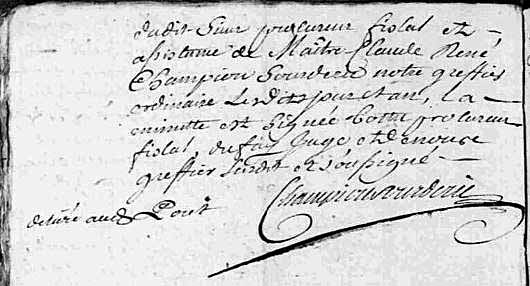 dudit Sieur procureur fiscal et
assistance de Maître Claude René
Champion Bourderie notre greffier
ordinaire Lesdits jour et an, La
minutte est Signée Cottu procureur
fiscal, dufay Juge et de nous
greffier Susdit et Soussigné
Champion Bourderie